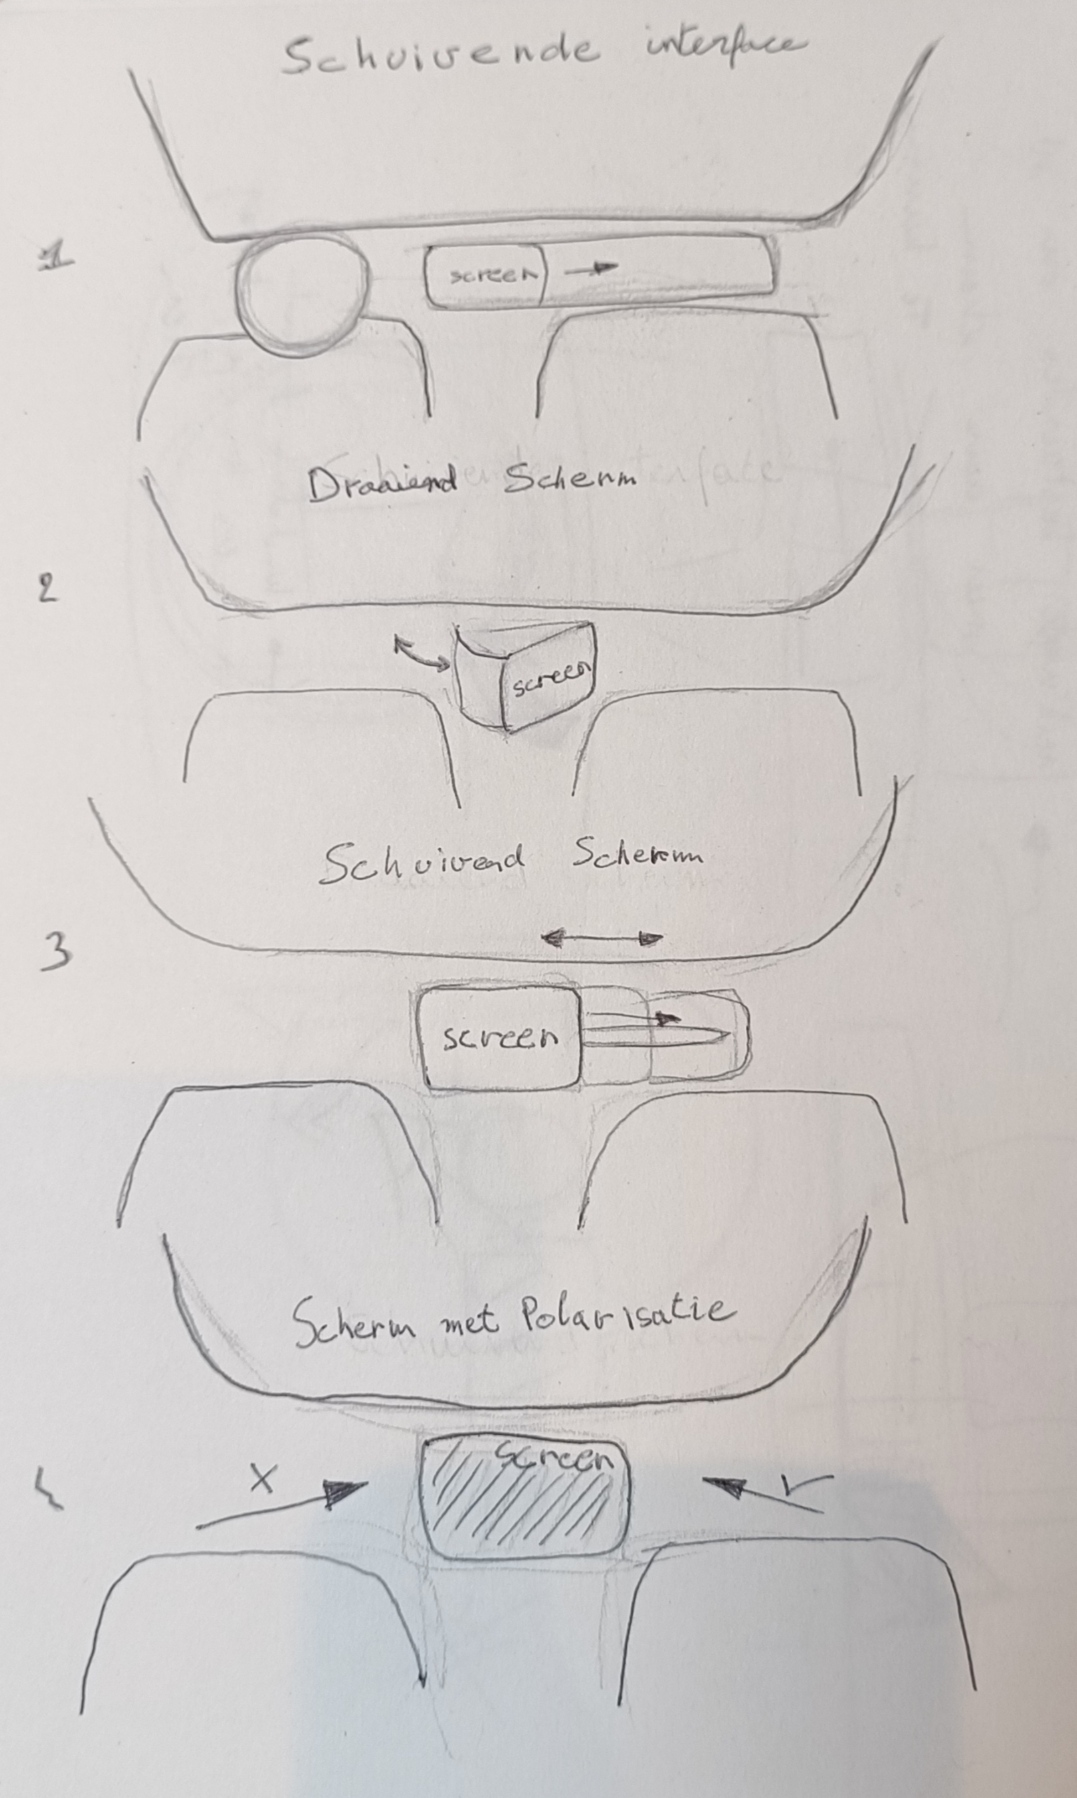 Schuivende interface
1
screen
Draaiend Scherm
2
screen
Schuivend Scherm
3
screen
Scherm met Polarisatie
4
X
screen